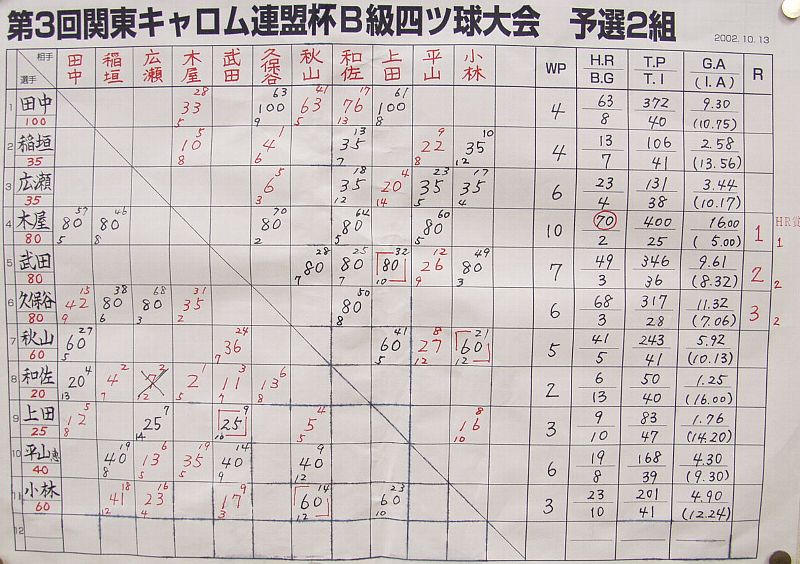 第3回関東キャロム連盟杯B級四ツ球大会 予選2組
2002.10.13
相手 選手 田中 稲垣 広瀬 木屋 武田 久保谷 秋山 和佐 上田 平山 小林 WP H.R B.G T.P T.I G.A (I.A) R
1 田中 100 33 28 5 100 63 9 63 41 5 76 17 13 100 61 8 4 63 8 372 40 9.30 (10.75)
2 稲垣 35 10 5 8 4 1 6 35 13 7 22 9 8 35 10 12 4 13 7 106 41 2.58 (13.56)
3 広瀬 35 6 5 3 35 18 12 20 14 4 35 23 5 35 17 4 6 23 4 131 38 3.44 (10.17)
4 木屋 80 80 57 5 80 46 8 80 70 2 80 64 5 80 60 5 10 70 2 400 25 16.00 (5.00) 1 HR賞 1
5 武田 80 80 28 7 80 25 7 80 32 10 26 12 9 80 49 3 7 49 3 346 36 9.61 (8.32) 2 2
6 久保谷 80 42 15 9 80 38 6 80 68 3 35 31 2 80 50 8 6 68 3 317 28 11.32 (7.06) 3 2
7 秋山 60 60 27 5 36 24 7 60 41 5 27 8 12 60 21 12 5 41 5 243 41 5.92 (10.13)
8 和佐 20 20 4 13 4 2 7 2 1 5 11 3 7 13 6 8 2 6 13 50 40 1.25 (16.00)
9 上田 25 12 5 8 25 7 14 25 9 10 5 4 5 16 8 10 3 9 10 83 47 1.76 (14.20)
10 平山恵 40 40 19 8 13 6 5 35 19 5 40 14 9 40 9 12 6 19 8 168 39 4.30 (9.30)
11 小林 60 41 18 12 23 16 4 17 9 3 60 14 12 60 23 10 3 23 10 201 41 4.90 (12.24)
12